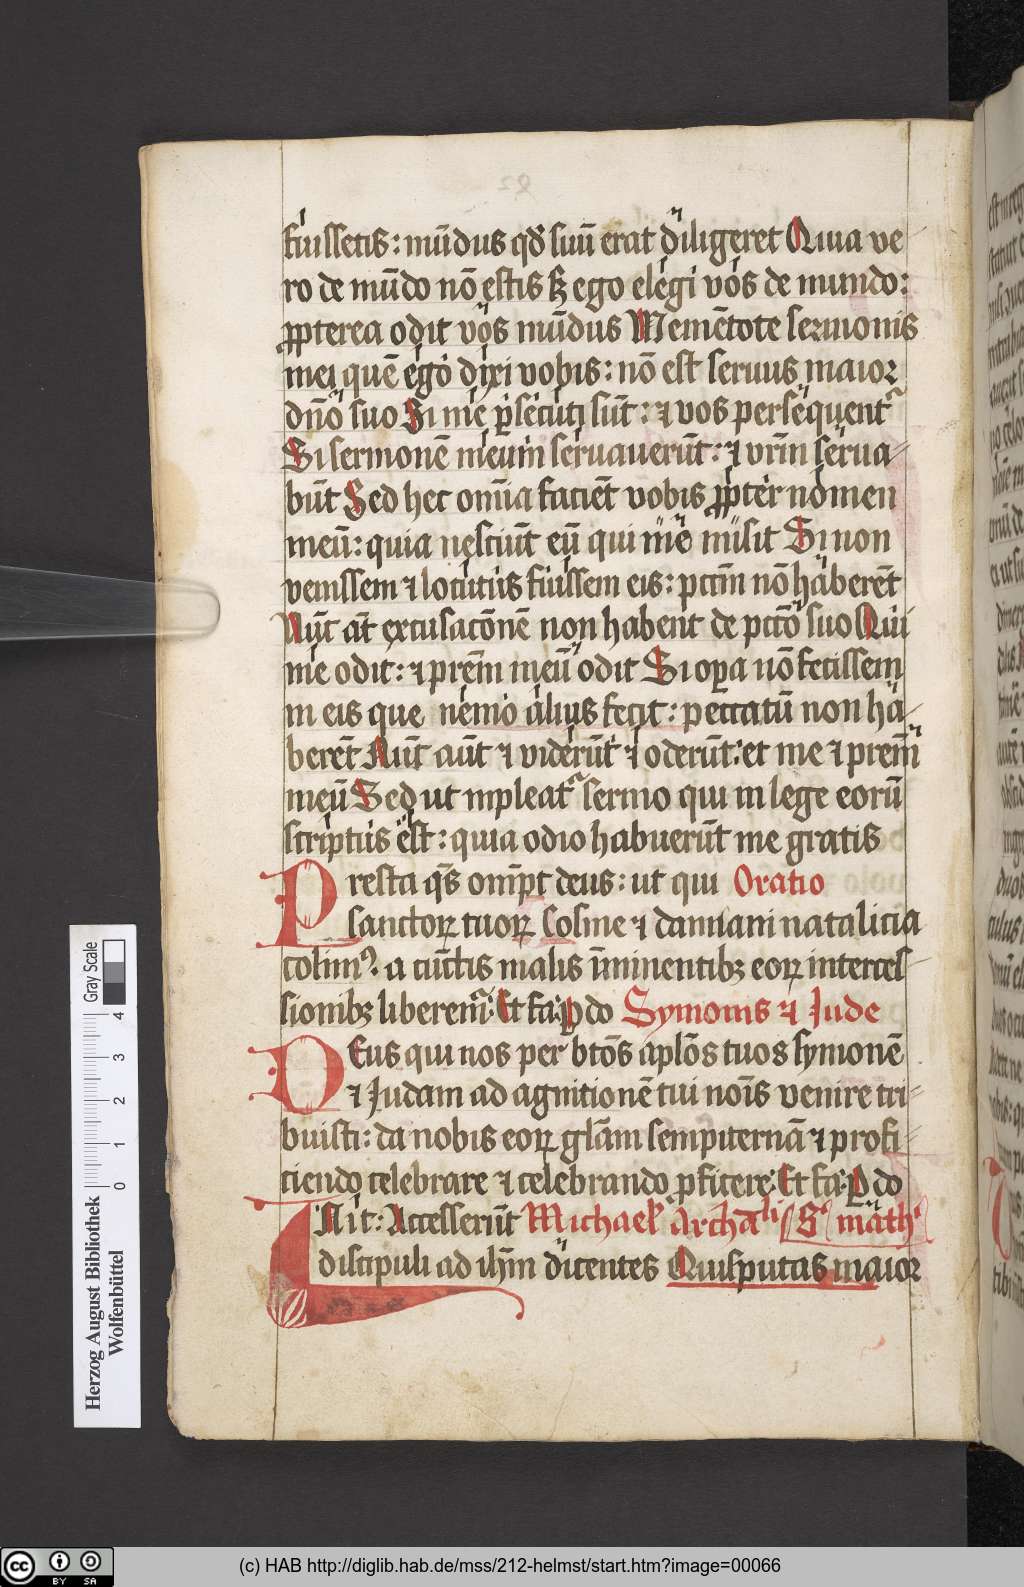 fuissetis: mūdus qd̄ suū erat diligeret Quia ve
ro de mūdo nō estis sꝫ ego elegi vos de mundo:
ꝓpterea odit vos mūdus Memētote sermonis
mei quē ego dixi vobis: nō est seruus maior
dnō suo Si me ꝑsecuti sūt: ⁊ vos persequent᷑
Si sermonē meum seruauerūt: ⁊ vrm̄ serua⸗
būt Sed hec omīa faciēt vobis ꝓpter nomen
meū: quia nesciūt eū qui me misit Si non
venissem ⁊ locutus fuissem eis: pctm̄ nō haberēt
Nūc āt excusacōnē non habent de pctō suo Qui
me odit: ⁊ prēm meū odit Si oꝑa nō fecissem
in eis que nemo alius fecit: peccatū non ha⸗
berēt Nūc aūt ⁊ viderūt ⁊ oderūt: et me ⁊ prēm
meū Sed ut impleat᷑ sermo qui in lege eorū
scriptus est: quia odio habuerūt me gratis
Presta qs̄ omp̄t deus: ut qui Oratio
sanctoꝝ tuoꝝ Cosme ⁊ damiani natalicia
colimꝰ: a cūctis malis īminentibꝫ eoꝝ interces⸗
sionibꝫ liberem᷑: Et fa: ꝑ do Symonis ⁊ Jude
DEus qui nos per btōs aplōs tuos symonē
⁊ Judam ad agnitionē tui nōis venire tri⸗
buisti: da nobis eoꝝ glām sempiternā ⁊ profi⸗
ciendo celebrare ⁊ celebrando ꝓficere: Et fa: ꝑ do
IN ilt: Accesserūt Michael archāli S. math
discipuli ad ihm̄ dicentes Quis putas maior
Gray Scale
4
3
2
1
0
Herzog August Bibliothek
Wolfenbüttel
cc BY SA
(c) HAB http://diglib.hab.de/mss/212-helmst/start.htm?image=00066